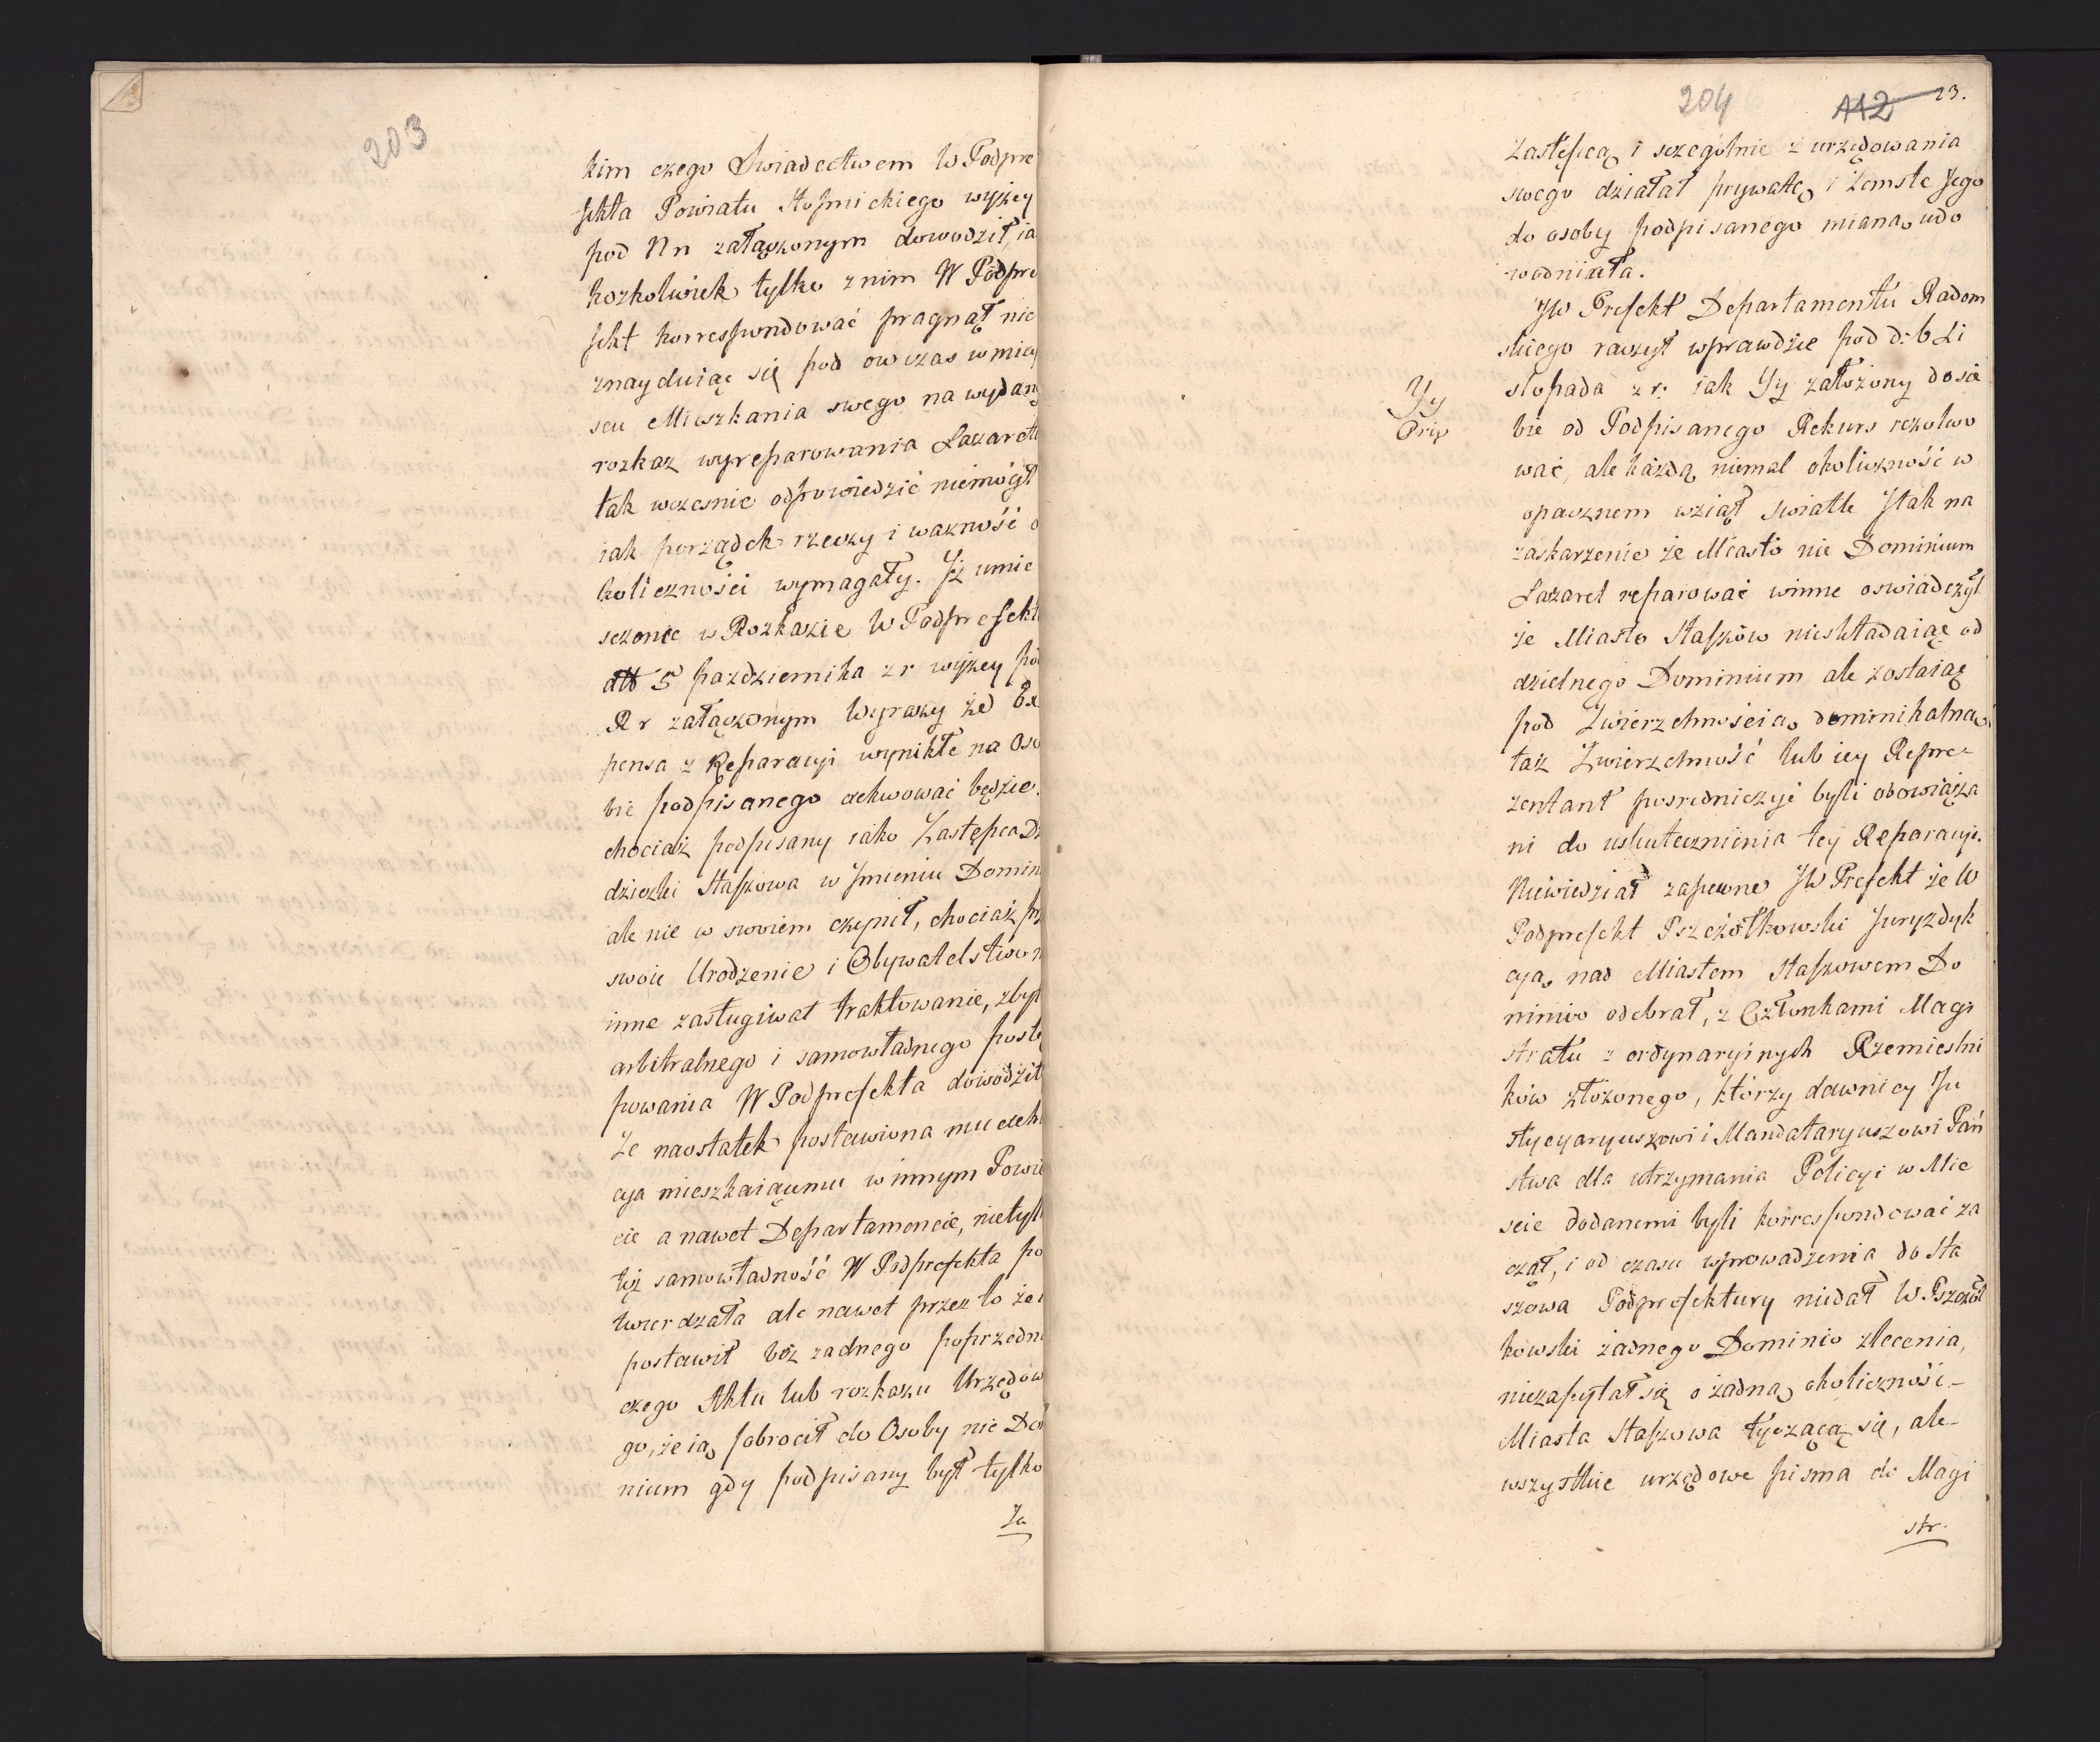 203
kim czego Swiadectwem W Podpre
fekta Powiatu Stopnickiego wyżey
pod Nn załączonym dowodził ia
kozkolwiek tylko z nim W Podpre
fekt korrespondować pragnął nie
znayduiąc się pod ow czas w miey
scu Mieszkania swego na wydany
rozkaz wyreparowania Lazarettu
tak wczesnie odpowiedzić niemógł
iak porządek rzeczy i wazność o
koliczności wymagały. Jż umie
sczone w Rozkazie W Podprefekta
dtt 5 pazdziernika z r wyżey pod
Rr załączonym Wyrazy że Ex
pensa z Reparacyi wynikłe na Oso
bie podpisanego exekwować będzie.
chociaż podpisany iako Zastępca Dz
dziczki Staszowa w Jmieniu Domin
ale nie w swoiem czynił, chociaż prz
swoie Urodzenie i Obywatelstwo n
inne zasługiwał traktowanie, zbyt
arbitralnego i samowładnego postę
powania W Podprefekta dowodził
Że naostatek postawiona mu exek
cya mieszkaiącemu w innym Powie
cie a nawet Departamencie, nietylk
tęż samowładność W Podprefekta po
twierdzała ale nawet przez to że i
postawił bez zadnego poprzedni
czego Aktu lub rozkazu Urzędow
go, że ią obrócił do Osoby nie Do
nium gdy podpisany był tylko
Za
204 112 23.
Zastępcą i sczegolnie z urzędowania
swego działał prywatę i Zemste Jego
do osoby podpisanego mianą udo
wodniała.
JW Prefekt Departamentu Radom
skiego raczył wprawdzie pod d: 6 Li
Yy
stopada z r: iak Yy załozony do sie
bie od Podpisanego Rekurs rezolwo
wać, ale każdą niemal okoliczność w
opacznem wziął swiatle Jtak na
zaskarzenie że Miasto nie Dominium
Lazaret reparować winne oswiadczył
że Miasto Staszów nieskładaiąc od
dzielnego Dominium ale zostaiąc
pod Zwierzchnościa dominikalną
taż Zwierzchność lub iey Repre-
zentant posredniczyć byli obowiąza
ni do uskutecznienia tey Reparacyi.
Niewiedział zapewne JW Prefekt że W
Podprefekt Pszczółkowski Juryzdyk
cyą nad Miastem Staszowem Do
minio odebrał, z Członkami Magi
stratu z ordynaryinych Rzemieslni
ków złóżonego, którzy dawniey Ju
stycyaryuszowi i Mandataryuszowi Pań
stwa dla utrzymania Policyi w Mie
scie dodanemi byli korrespondować za
czął, i od czasu wprowadzenia do Sta
szowa Podprefektury niedał W Pszczół
kowski żadnego Dominio zlecenia,
niezapytał się o żadną okoliczność-
Miasta Staszowa tyczącą się, ale-
wszystkie urzędowe pisma do Magi
str.